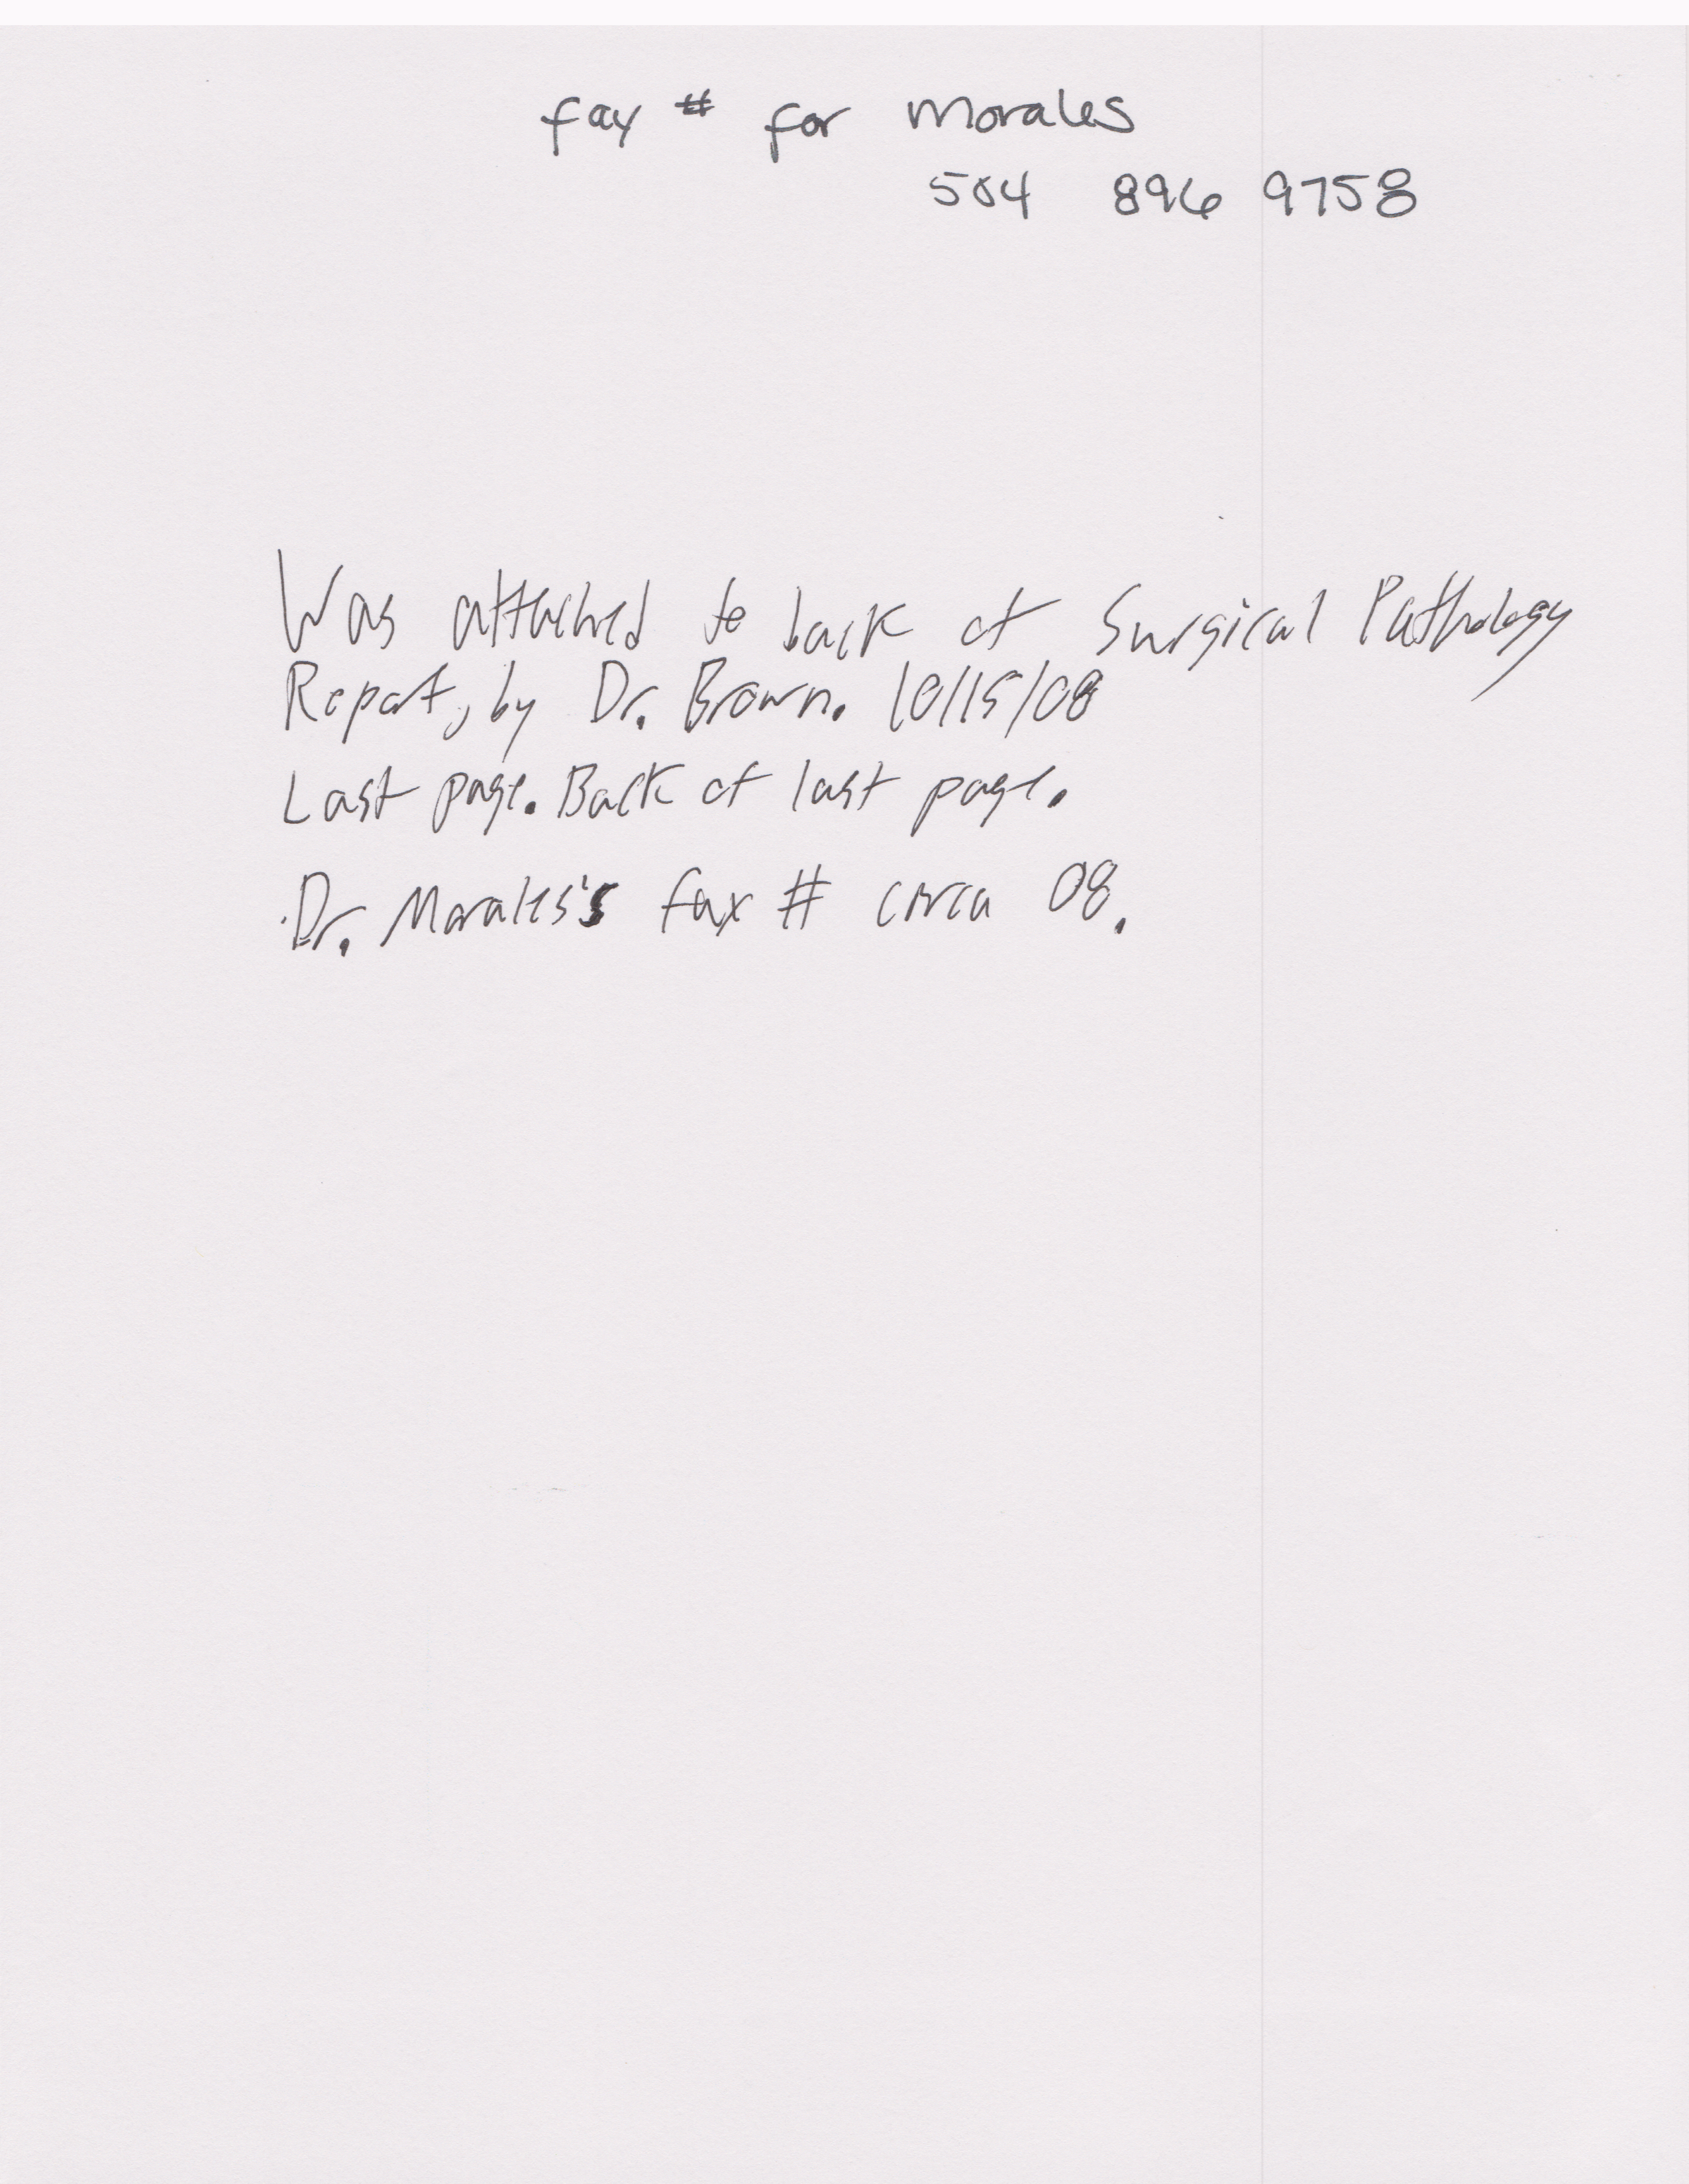 fax # for Morales
504 896 9758
Was attached to back of Surgical Pathology
Report, by Dr. Brown. 10/15/08
Last page. Back of last page.
Dr. Morales's fax # circa 08.